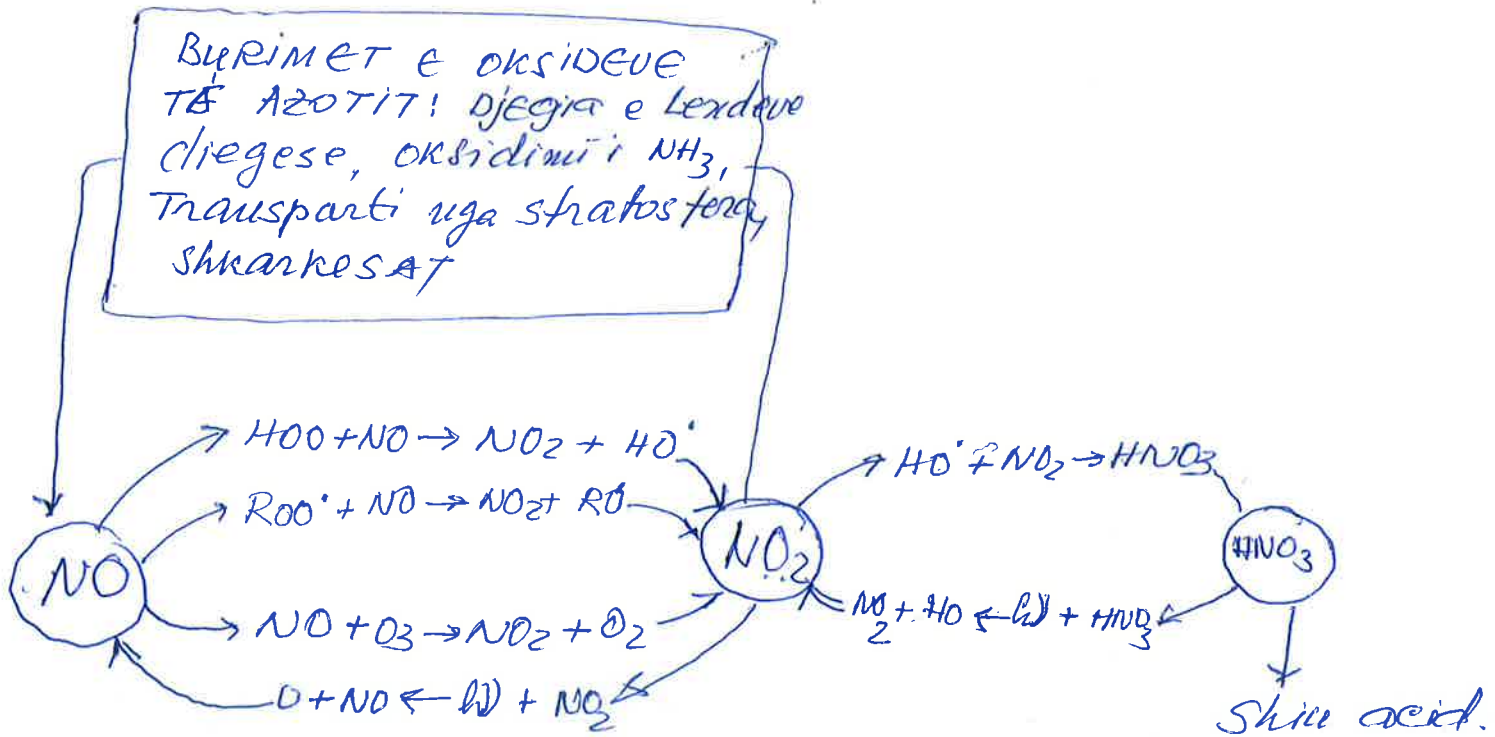 BURIMET E OKSIDEVE
TË AZOTIT! Djegia e Lendeve
djegese, oksidimi i NH3,
Transparti nga stratosfera,
shkarkesAT
HOO + NO → NO2 + HO•
ROO• + NO → NO2 + RO
NO
NO + O3 → NO2 + O2
O + NO ← hν + NO2
NO2
HO• + NO2 → HNO3
NO2 + HO ← hν + HNO3
HNO3
Shiu acid.